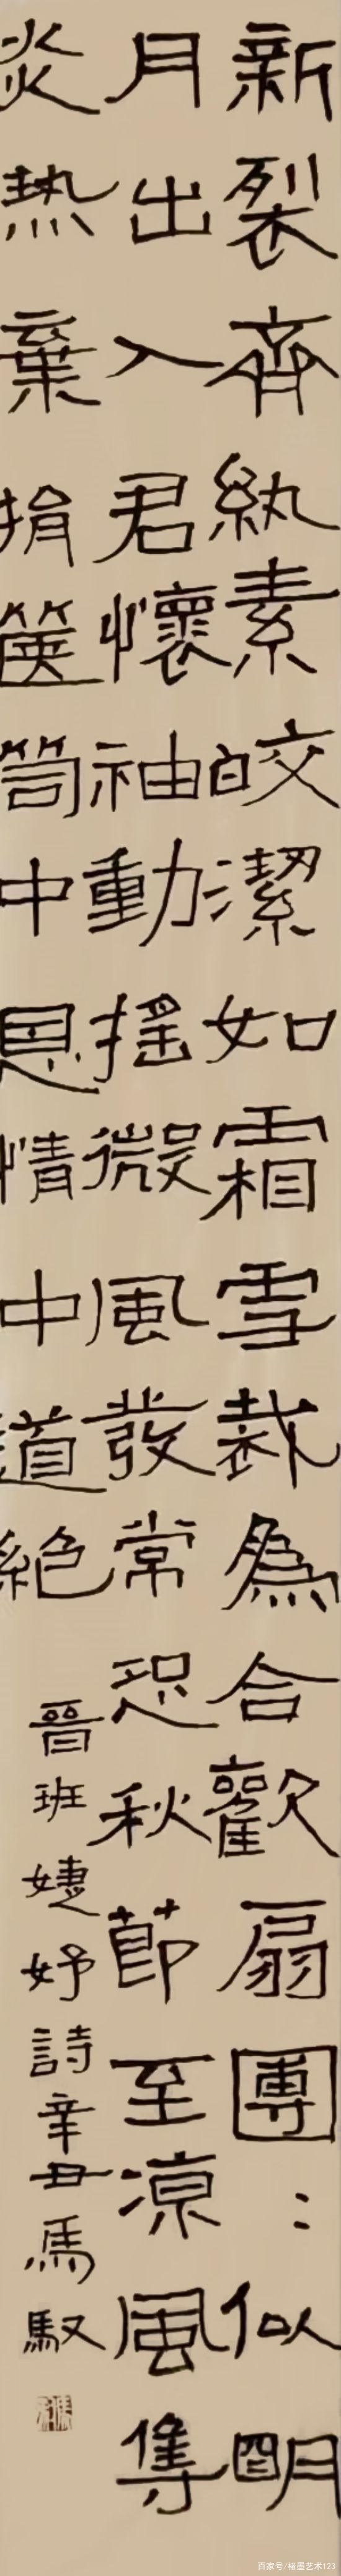 新裂齊紈素皎潔如霜雪裁為合歡扇團〻似明
月出入君懷袖動搖微風發常恐秋節至涼風奪
炎热棄捐篋笥中恩情中道絕
晉班婕妤詩辛丑馬馭
百家号/楮墨艺术123